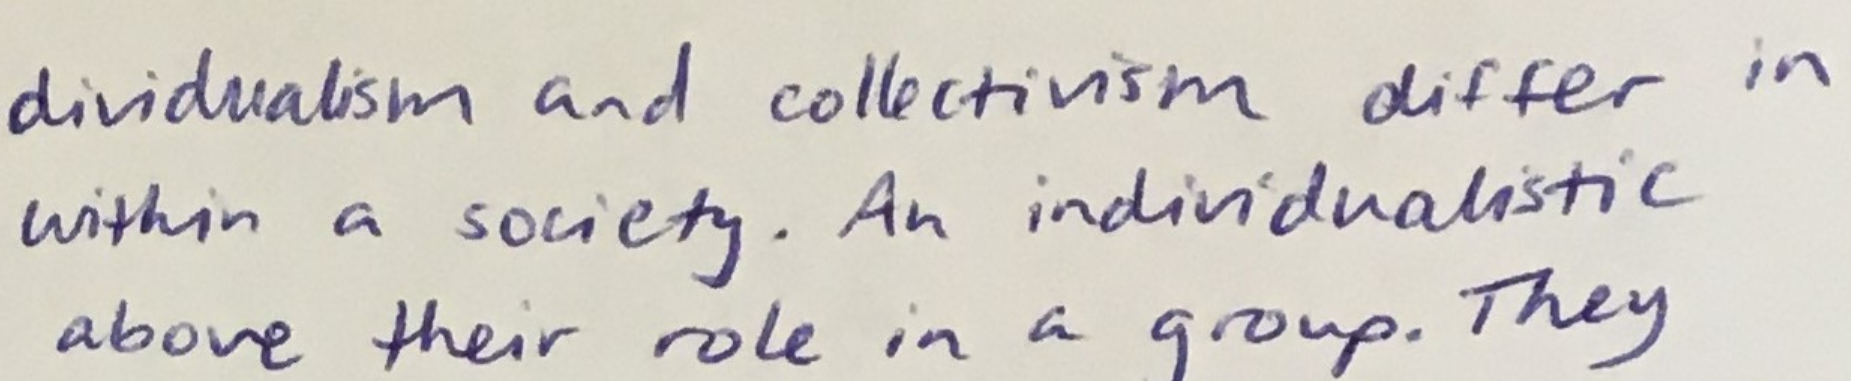 dividualism and collectivism differ in
within a society. An individualistic
above their role in a group. They